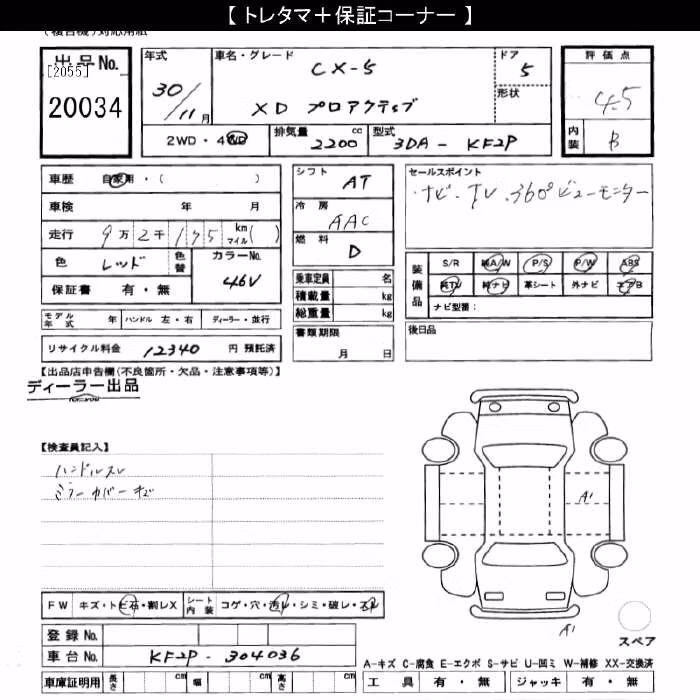 【 トレタマ＋保証コーナー 】
(複合機)対応用紙
出品No.
[2055]
20034
年式
30/11月
車名・グレード
CX-5
XD プロアクティブ
ドア
5
形状
評価点
4.5
内装
B
2WD・4WD
排気量
2200 cc
型式
3DA - KF2P
車歴 自家用・( )
車検 年 月
走行 9万2千175 km マイル( )
色 レッド 色替 カラーNo. 46V
保証書 有・無
モデル年式 年 ハンドル 左・右 ディーラー・並行
リサイクル料金 12340 円 預託済
シフト
AT
冷房
AAC
燃料
D
乗車定員 名
積載量 kg
総重量 kg
書類期限
月 日
セールスポイント
ナビ・TV・360°ビューモニター
装備品
S/R 純A/W P/S P/W ABS
純TV 純ナビ 革シート 外ナビ エアB
ナビ型番：
後日品
【出品店申告欄(不良箇所・欠品・注意事項等)】
ディーラー出品
【検査員記入】
ハンドルスレ
ミラーカバーキズ
A1
A1
スペア
FW キズ・トビ石・割レX シート内装 コゲ・穴・汚レ・シミ・破レ・スレ
登録No.
車台No. KF2P - 304036
車庫証明用 長さ cm 幅 cm 高さ cm
A-キズ C-腐食 E-エクボ S-サビ U-凹ミ W-補修 XX-交換済
工具 有・無 ジャッキ 有・無